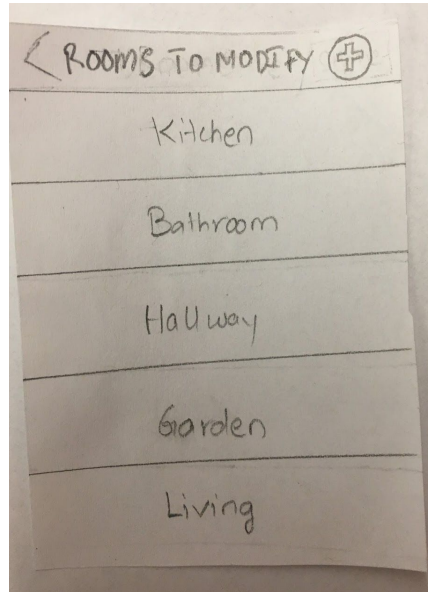 ROOMS TO MODIFY
Kitchen
Bathroom
Hallway
Garden
Living